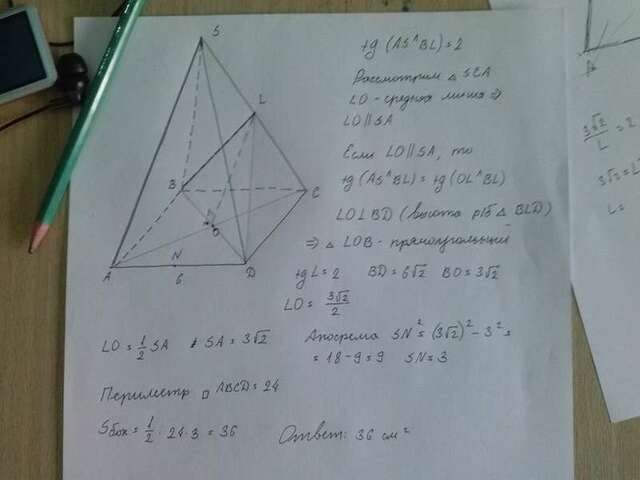 S
L
B
C
O
N
A
6
D
tg (AS^BL) = 2
Рассмотрим △ SCA
LO - средняя линия ⇒
LO || SA
Если LO || SA, то
tg (AS^BL) = tg (OL^BL)
LO ⊥ BD (высота р/б △ BLD)
⇒ △ LOB - прямоугольный
tg L = 2 BD = 6√2 BO = 3√2
LO = 3√2/2
LO = 1/2 SA SA = 3√2
Апофема SN² = (3√2)² - 3² =
= 18 - 9 = 9 SN = 3
Периметр □ ABCD = 24
Sбок = 1/2 · 24 · 3 = 36
Ответ: 36 см²
3√2/L = 2
L =